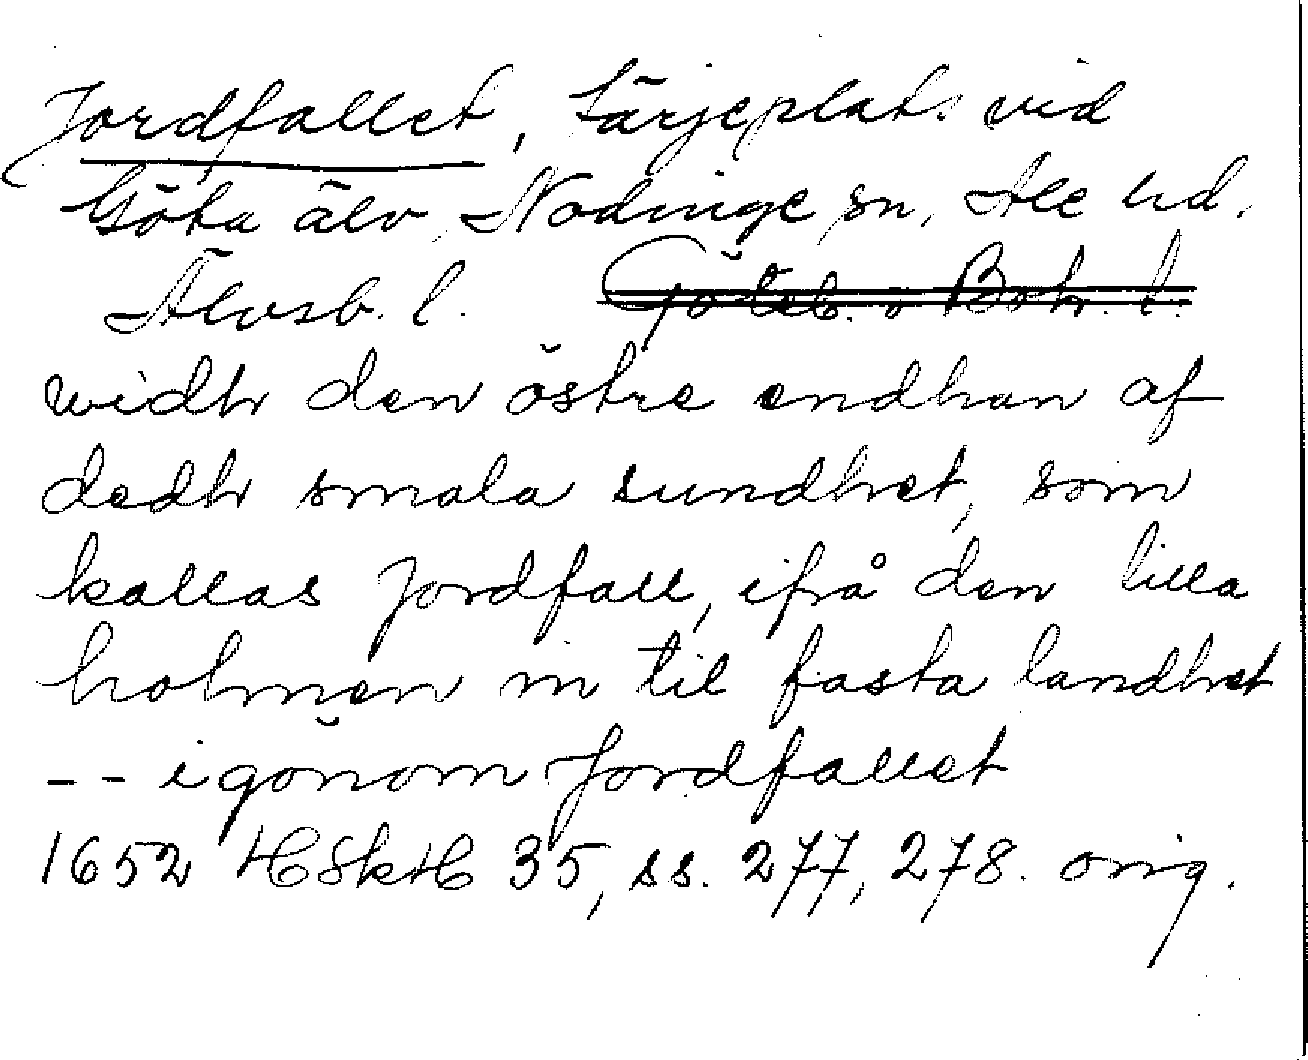 Jordfallet, Färjeplats vid
Göta älv, Nödinge sn, Ale hd.
Älvsb. l. Göteb. o Boh. l.
widh den östre endhan af
dedh smala sundhet, som
kallas Jordfall, ifrå den lilla
holmen in til fasta landhet
-- igönom Jordfallet
1652 HSkH 35, ss. 277, 278. orig.